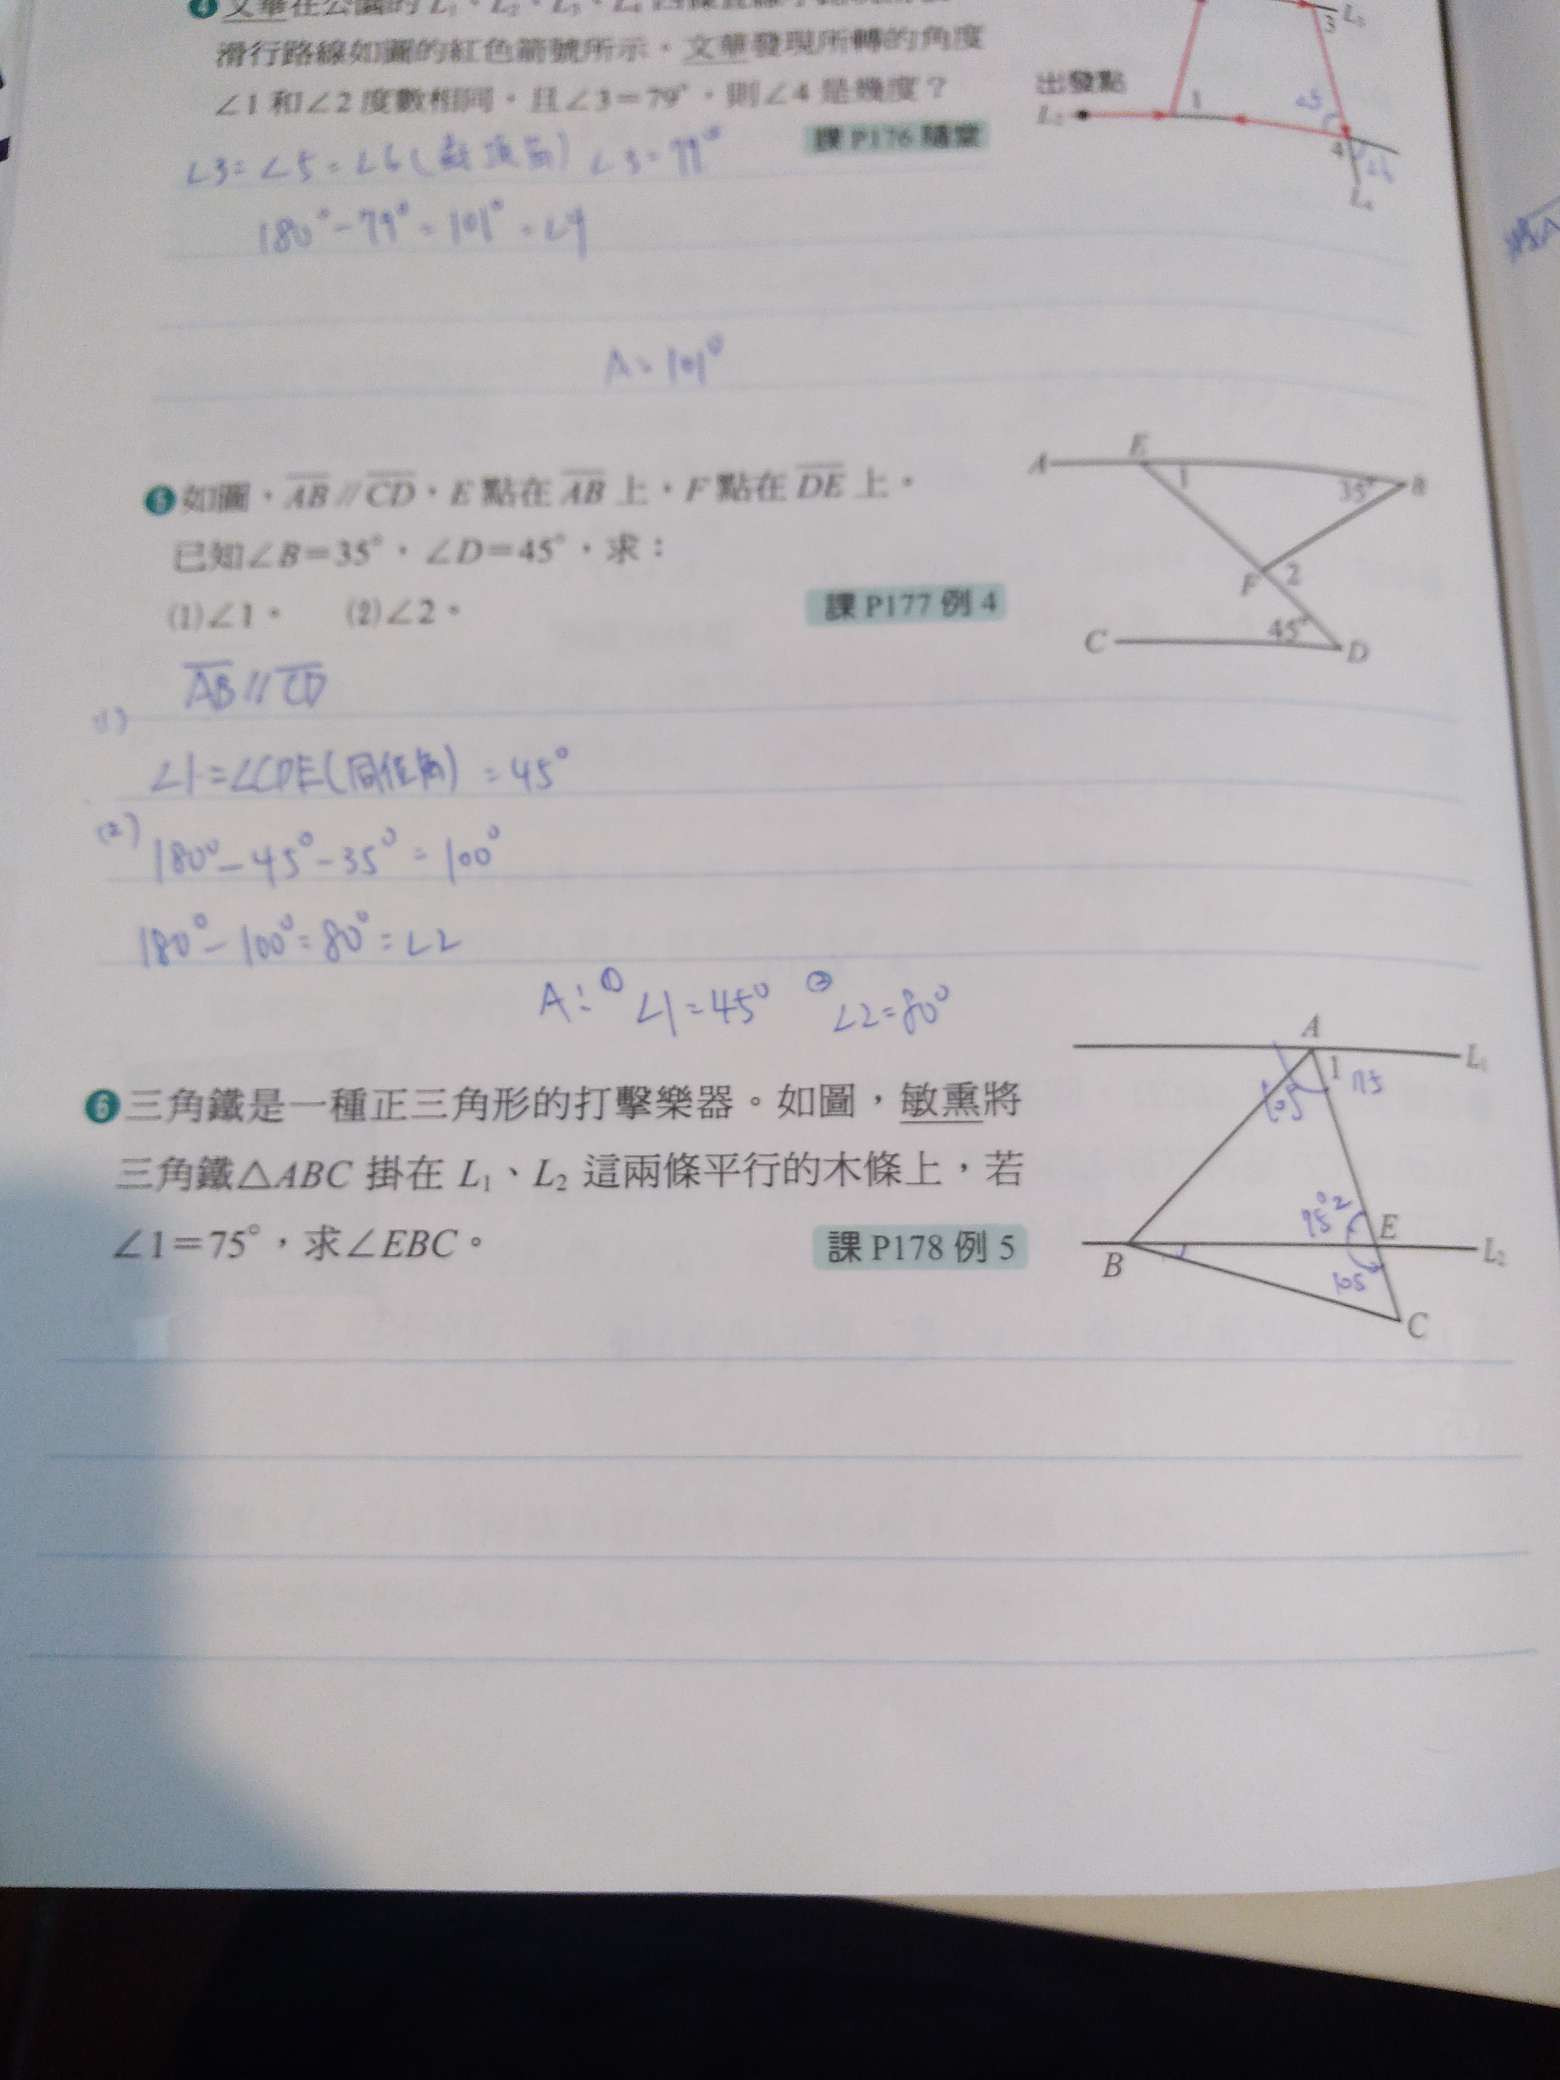 4 文華在公園的 L₁、L₂、L₃、L₄
滑行路線如圖的紅色箭號所示。文華發現所轉的角度
∠1 和∠2 度數相同,且∠3=79°,則∠4 是幾度?
課 P176 隨堂
出發點
L₂
1
3
L₃
∠5
4
∠6
L₄
∠3=∠5=∠6(對頂角) ∠3=79°
180°-79°=101°=∠4
A=101°
5 如圖,AB // CD,E 點在 AB 上,F 點在 DE 上。
已知∠B=35°,∠D=45°,求:
(1)∠1。 (2)∠2。
課 P177 例 4
A E 1 35° B
F 2
C 45° D
AB // CD
(1)
∠1=∠CDE(同位角)=45°
(2) 180°-45°-35°=100°
180°-100°=80°=∠2
A:① ∠1=45° ② ∠2=80°
6 三角鐵是一種正三角形的打擊樂器。如圖,敏熏將
三角鐵△ABC 掛在 L₁、L₂ 這兩條平行的木條上,若
∠1=75°,求∠EBC。
課 P178 例 5
A L₁
1 75
105
75° 2 E
B L₂
105
C